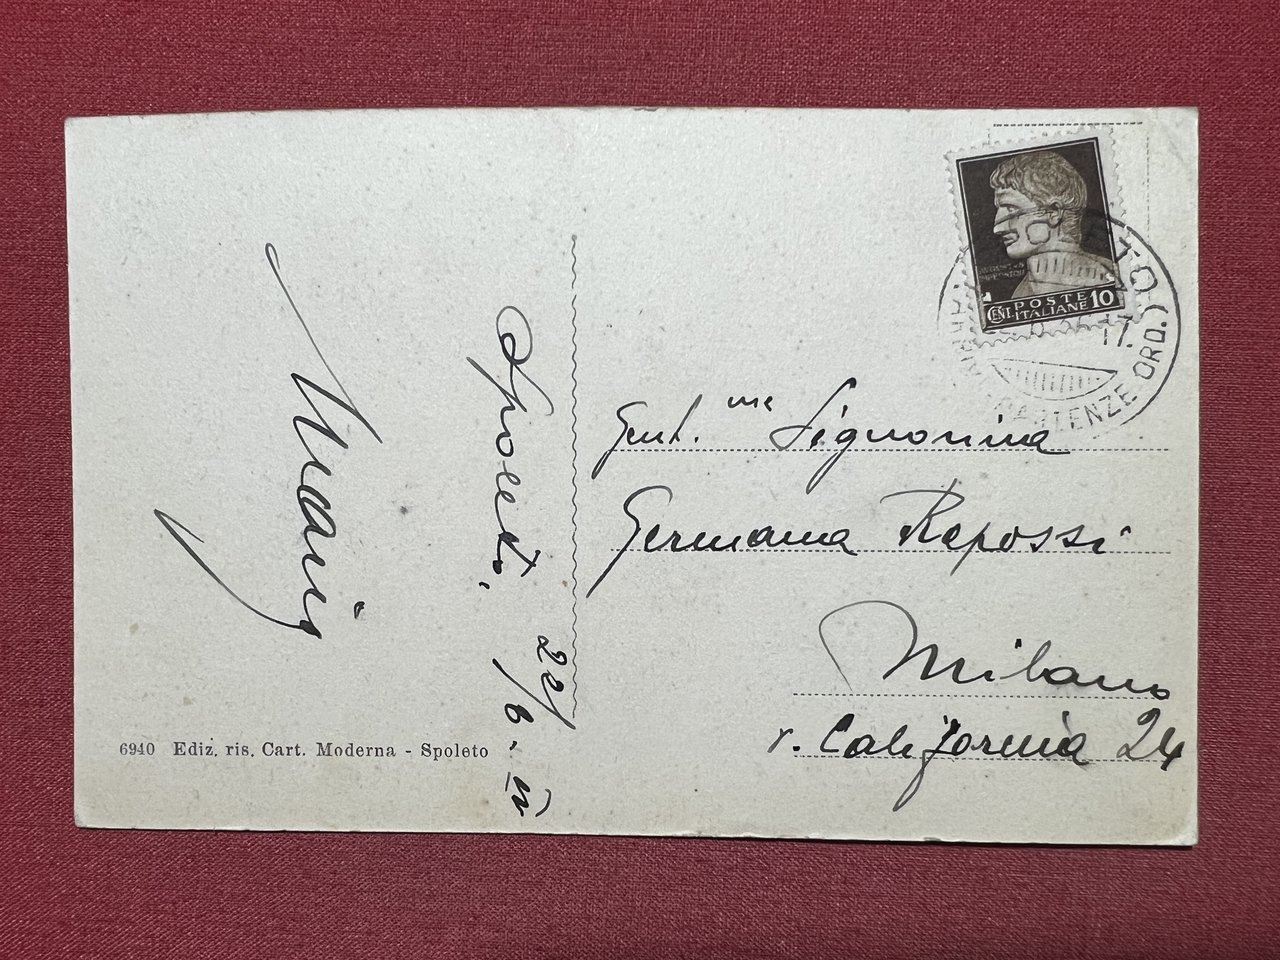 Mariz
Spoleto,
22/6-IV
6940 Ediz. ris. Cart. Moderna - Spoleto
AVGVSTVS
CENT. POSTE ITALIANE 10
TO (
PARTENZE ORD.)
17.
Gent.ma Signorina
Germana Repossi
Milano
v. California 24